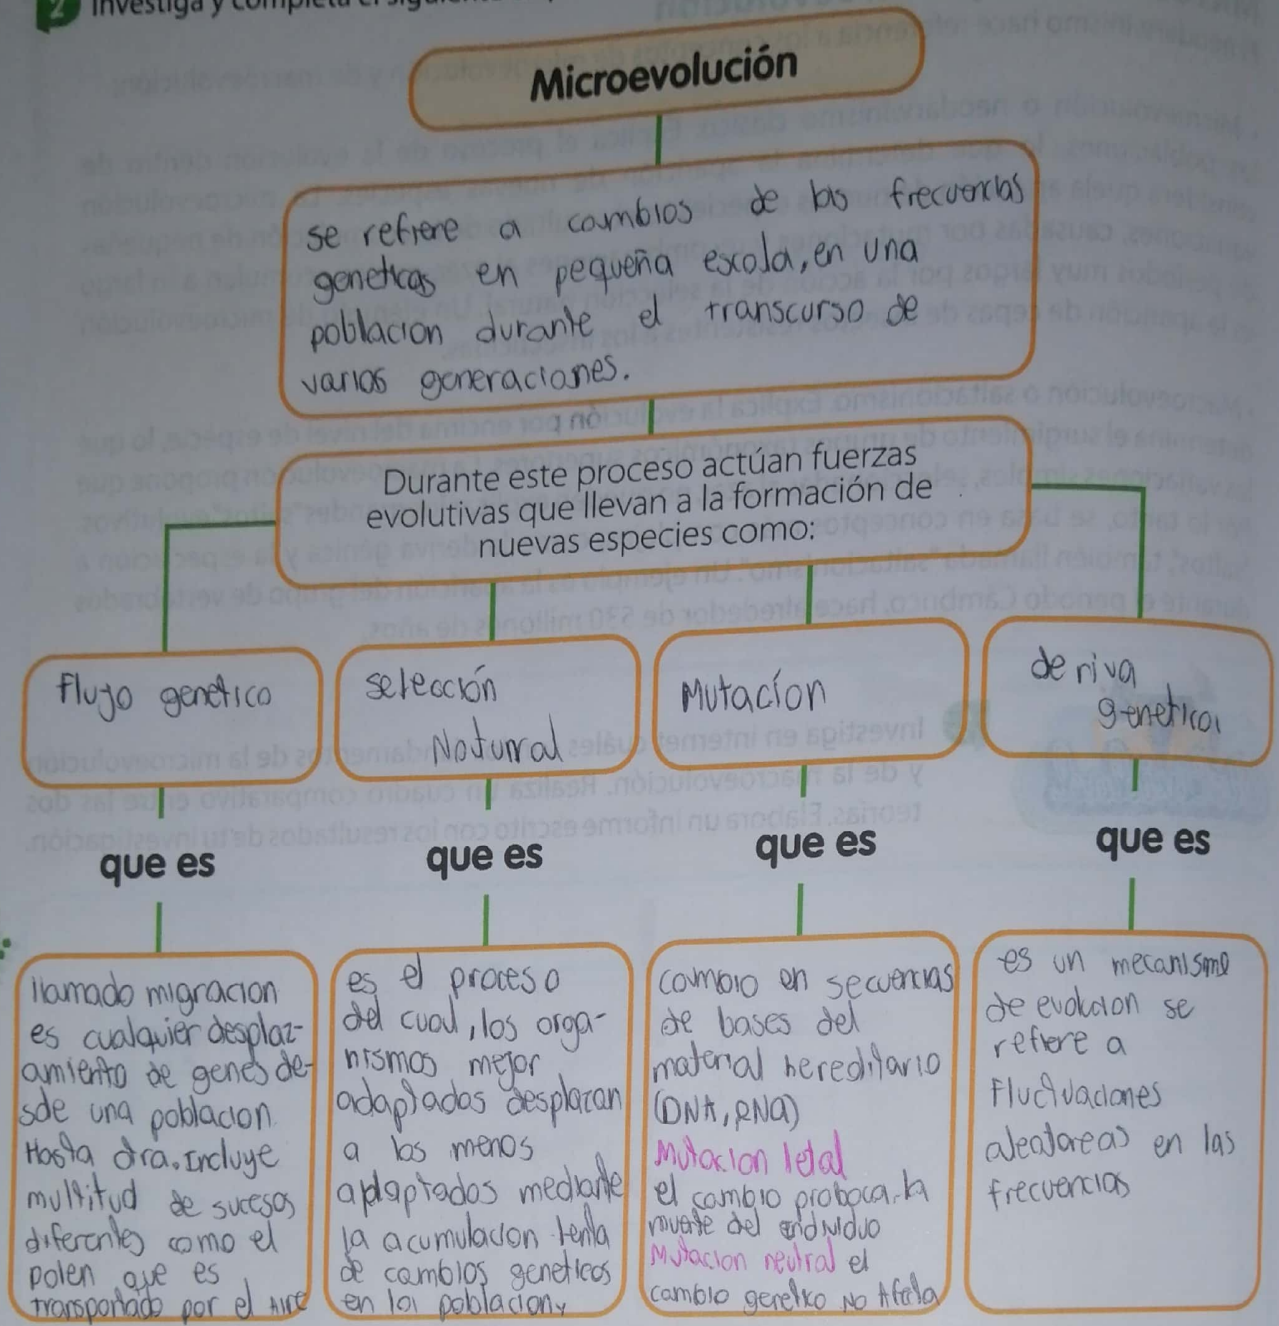 2 Investiga y completa el
Microevolución
se refiere a cambios de las frecuencias
geneticas en pequeña escala, en una
poblacion durante el transcurso de
varias generaciones.
Durante este proceso actúan fuerzas
evolutivas que llevan a la formación de
nuevas especies como:
flujo genetico
selección
Natural
Mutación
deriva
genetica
que es
que es
que es
que es
llamado migracion
es cualquier desplaz-
amiento de genes de-
sde una poblacion
Hasta otra. Incluye
multitud de sucesos
diferentes como el
polen que es
transportado por el Aire
es el proceso
del cual, los orga-
nismos mejor
adaptados desplazan
a los menos
adaptados mediante
la acumulacion lenta
de cambios geneticos
en la poblacion
cambio en secuencias
de bases del
material hereditario
(DNA, RNA)
Mutacion letal
el cambio proboca la
muerte del individuo
Mutacion neutral el
cambio genetico NO Afecta
es un mecanismo
de evolucion se
refiere a
Fluctuaciones
aleatoreas en las
frecuencias